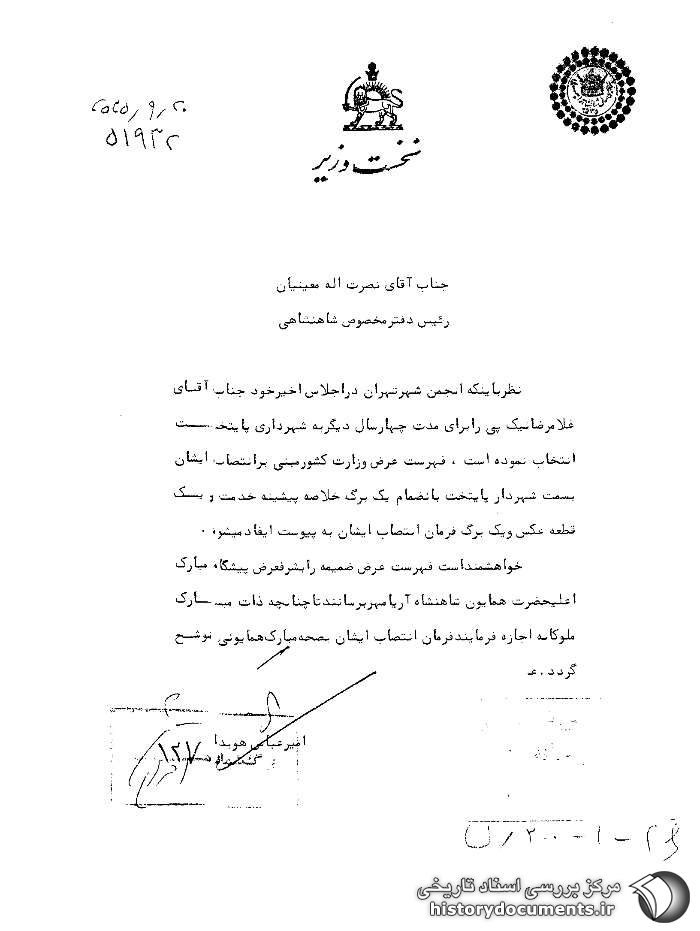 ۲۵۳۵/۹/۲۰
۵۱۹۳۲
نخست وزیر
جناب آقای نصرت اله معینیان
رئیس دفتر مخصوص شاهنشاهی
نظر باینکه انجمن شهر تهران در اجلاس اخیر خود جناب آقـای
غلامرضا نیک پی را برای مدت چهار سال دیگر به شهرداری پایتخـــت
انتخاب نموده است ، فهرست عرض وزارت کشور مبنی بر انتصاب ایشان
بسمت شهردار پایتخت بانضمام یک برگ خلاصه پیشینه خدمت و یـــک
قطعه عکس و یک برگ فرمان انتصاب ایشان به پیوست ایفاد میشود .
خواهشمند است فهرست عرض ضمیمه را بشرفعرض پیشگاه مبارک
اعلیحضرت همایون شاهنشاه آریامهر برسانند تا چنانچه ذات مبـــارک
ملوکانه اجازه فرمایند فرمان انتصاب ایشان بصحه مبارک همایونی توشـــح
گردد . ع
امیر عباس هویدا
۱۲۷
۲۰۰-۱-۲
مرکز بررسی اسناد تاریخی
historydocuments.ir